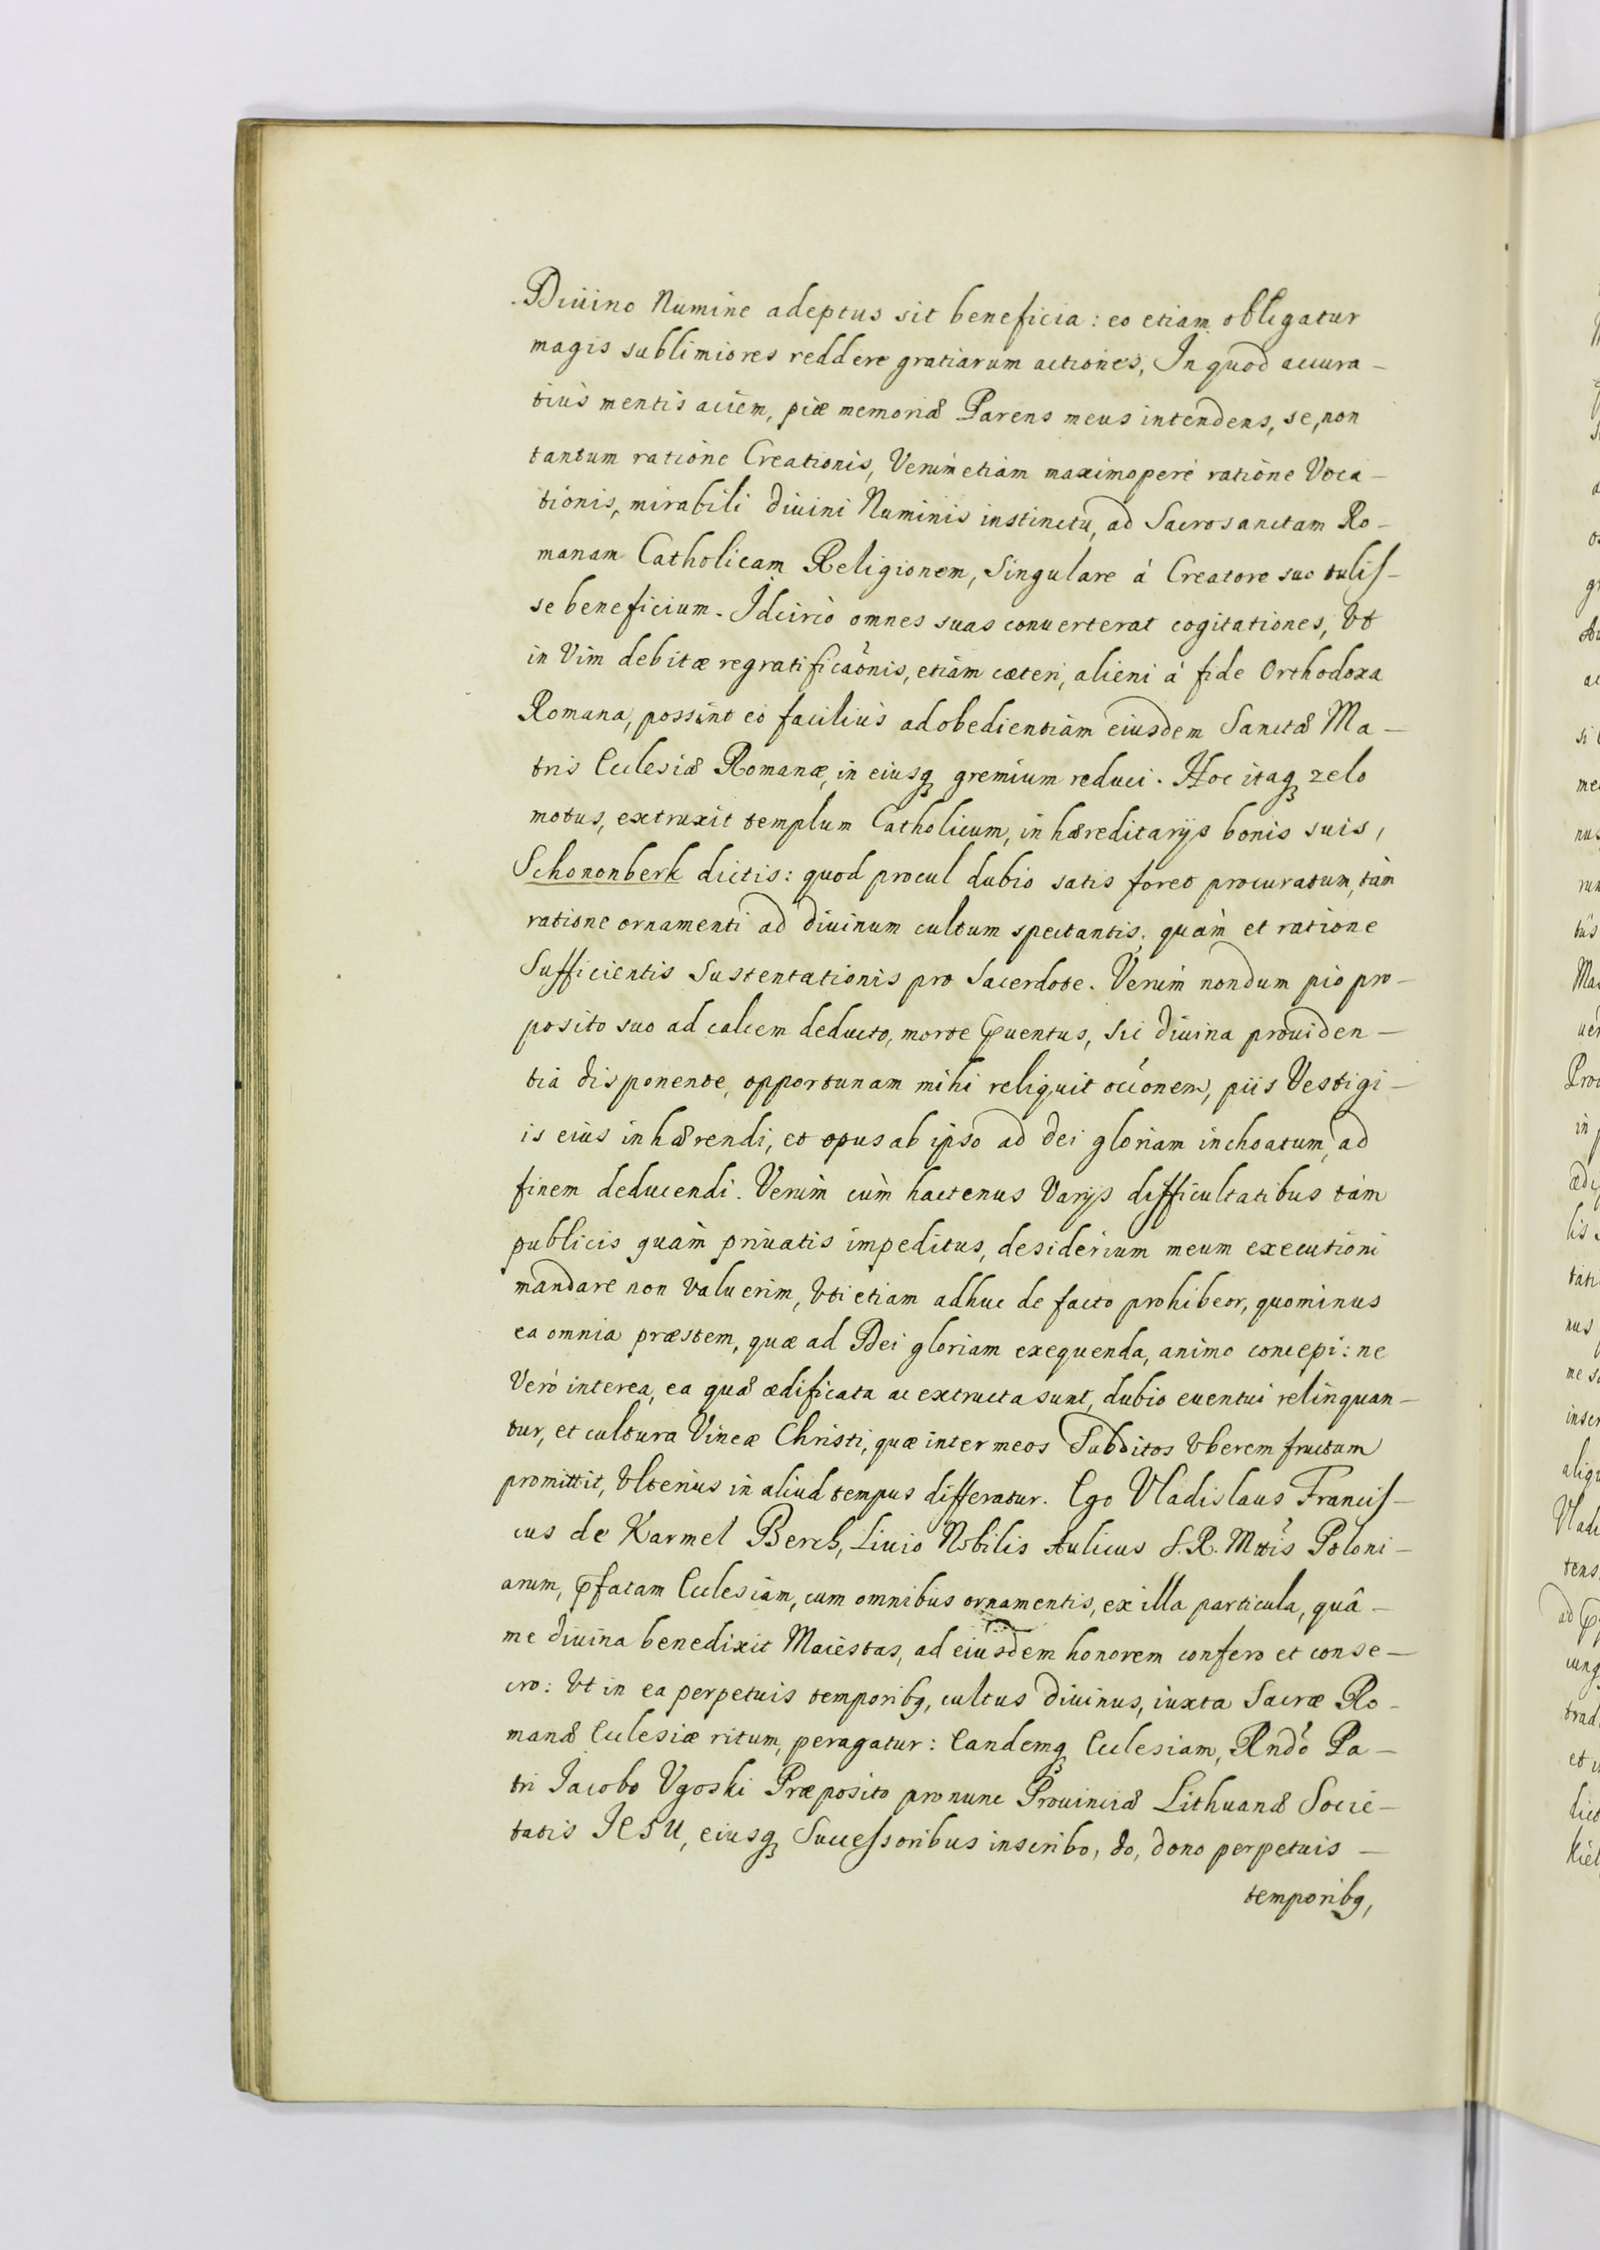 Diuino Numine adeptus sit beneficia: eo etiam obligatur
magis sublimiores reddere gratiarum actiones, In quod accura-
tiùs mentis aciem, piæ memoriæ Parens meus intendens, se, non
tantum ratione Creationis, Verùm etiam maximoperè ratione Voca-
tionis, mirabili diuini Numinis instinctu, ad Sacrosanctam Ro-
manam Catholicam Religionem, Singulare à Creatore suo tulis-
se beneficium. Idcircò omnes suas conuerterat cogitationes, Vt
in Vim debitæ regratificaõnis, etiam cæteri, alieni à fide Orthodoxa
Romana, possint eò faciliùs ad obedientiam eiusdem Sanctæ Ma-
tris Ecclesiæ Romanæ, in eiusq gremium reduci. Hoc itaq zelo
motus, extruxit templum Catholicum, in hæreditarijs bonis suis,
Schononberk dictis: quod procul dubio satis foret procuratum, tàm
ratione ornamenti ad diuinum cultum spectantis, quàm et ratione
Sufficientis Sustentationis pro Sacerdote. Verùm nondum pio pro-
posito suo ad calcem deducto, morte pruentus, sic diuina prouiden-
tia disponente, opportunam mihi reliquit occõnem, piis Vestigi-
is eius inhærendi, et opus ab ipso ad dei gloriam inchoatum, ad
finem deducendi. Verùm cùm hactenus Varijs difficultatibus tàm
publicis quàm priuatis impeditus, desiderium meum executioni
mandare non Valuerim, Vti etiam adhuc de facto prohibeor, quominus
ea omnia præstem, quæ ad Dei gloriam exequenda, animo concepi: ne
Verò interea, ea quæ ædificata ac extructa sunt, dubio euentui relinquan-
tur, et cultura Vineæ Christi, quæ inter meos Subditos Vberem fructum
promittit, Vlterius in aliud tempus differatur. Ego Vladislaus Francis-
cus de Karmel Berch, Liuio Nobilis Aulicus S. R. Mttis Poloni-
arum, pfatam Ecclesiam, cum omnibus ornamentis, ex illa particula, quâ-
me diuina benedixit Maiestas, ad eiusdem honorem confero et conse-
cro: Vt in ea perpetuis temporibq, cultus diuinus, iuxta Sacræ Ro-
manæ Ecclesiæ ritum, peragatur: Eandemq Ecclesiam, Rndõ Pa-
tri Jacobo Vgoski Præposito pronunc Prouinciæ Lithuanæ Socie-
tatis JESU, eiusq Successoribus inscribo, do, dono perpetuis-
temporibq,